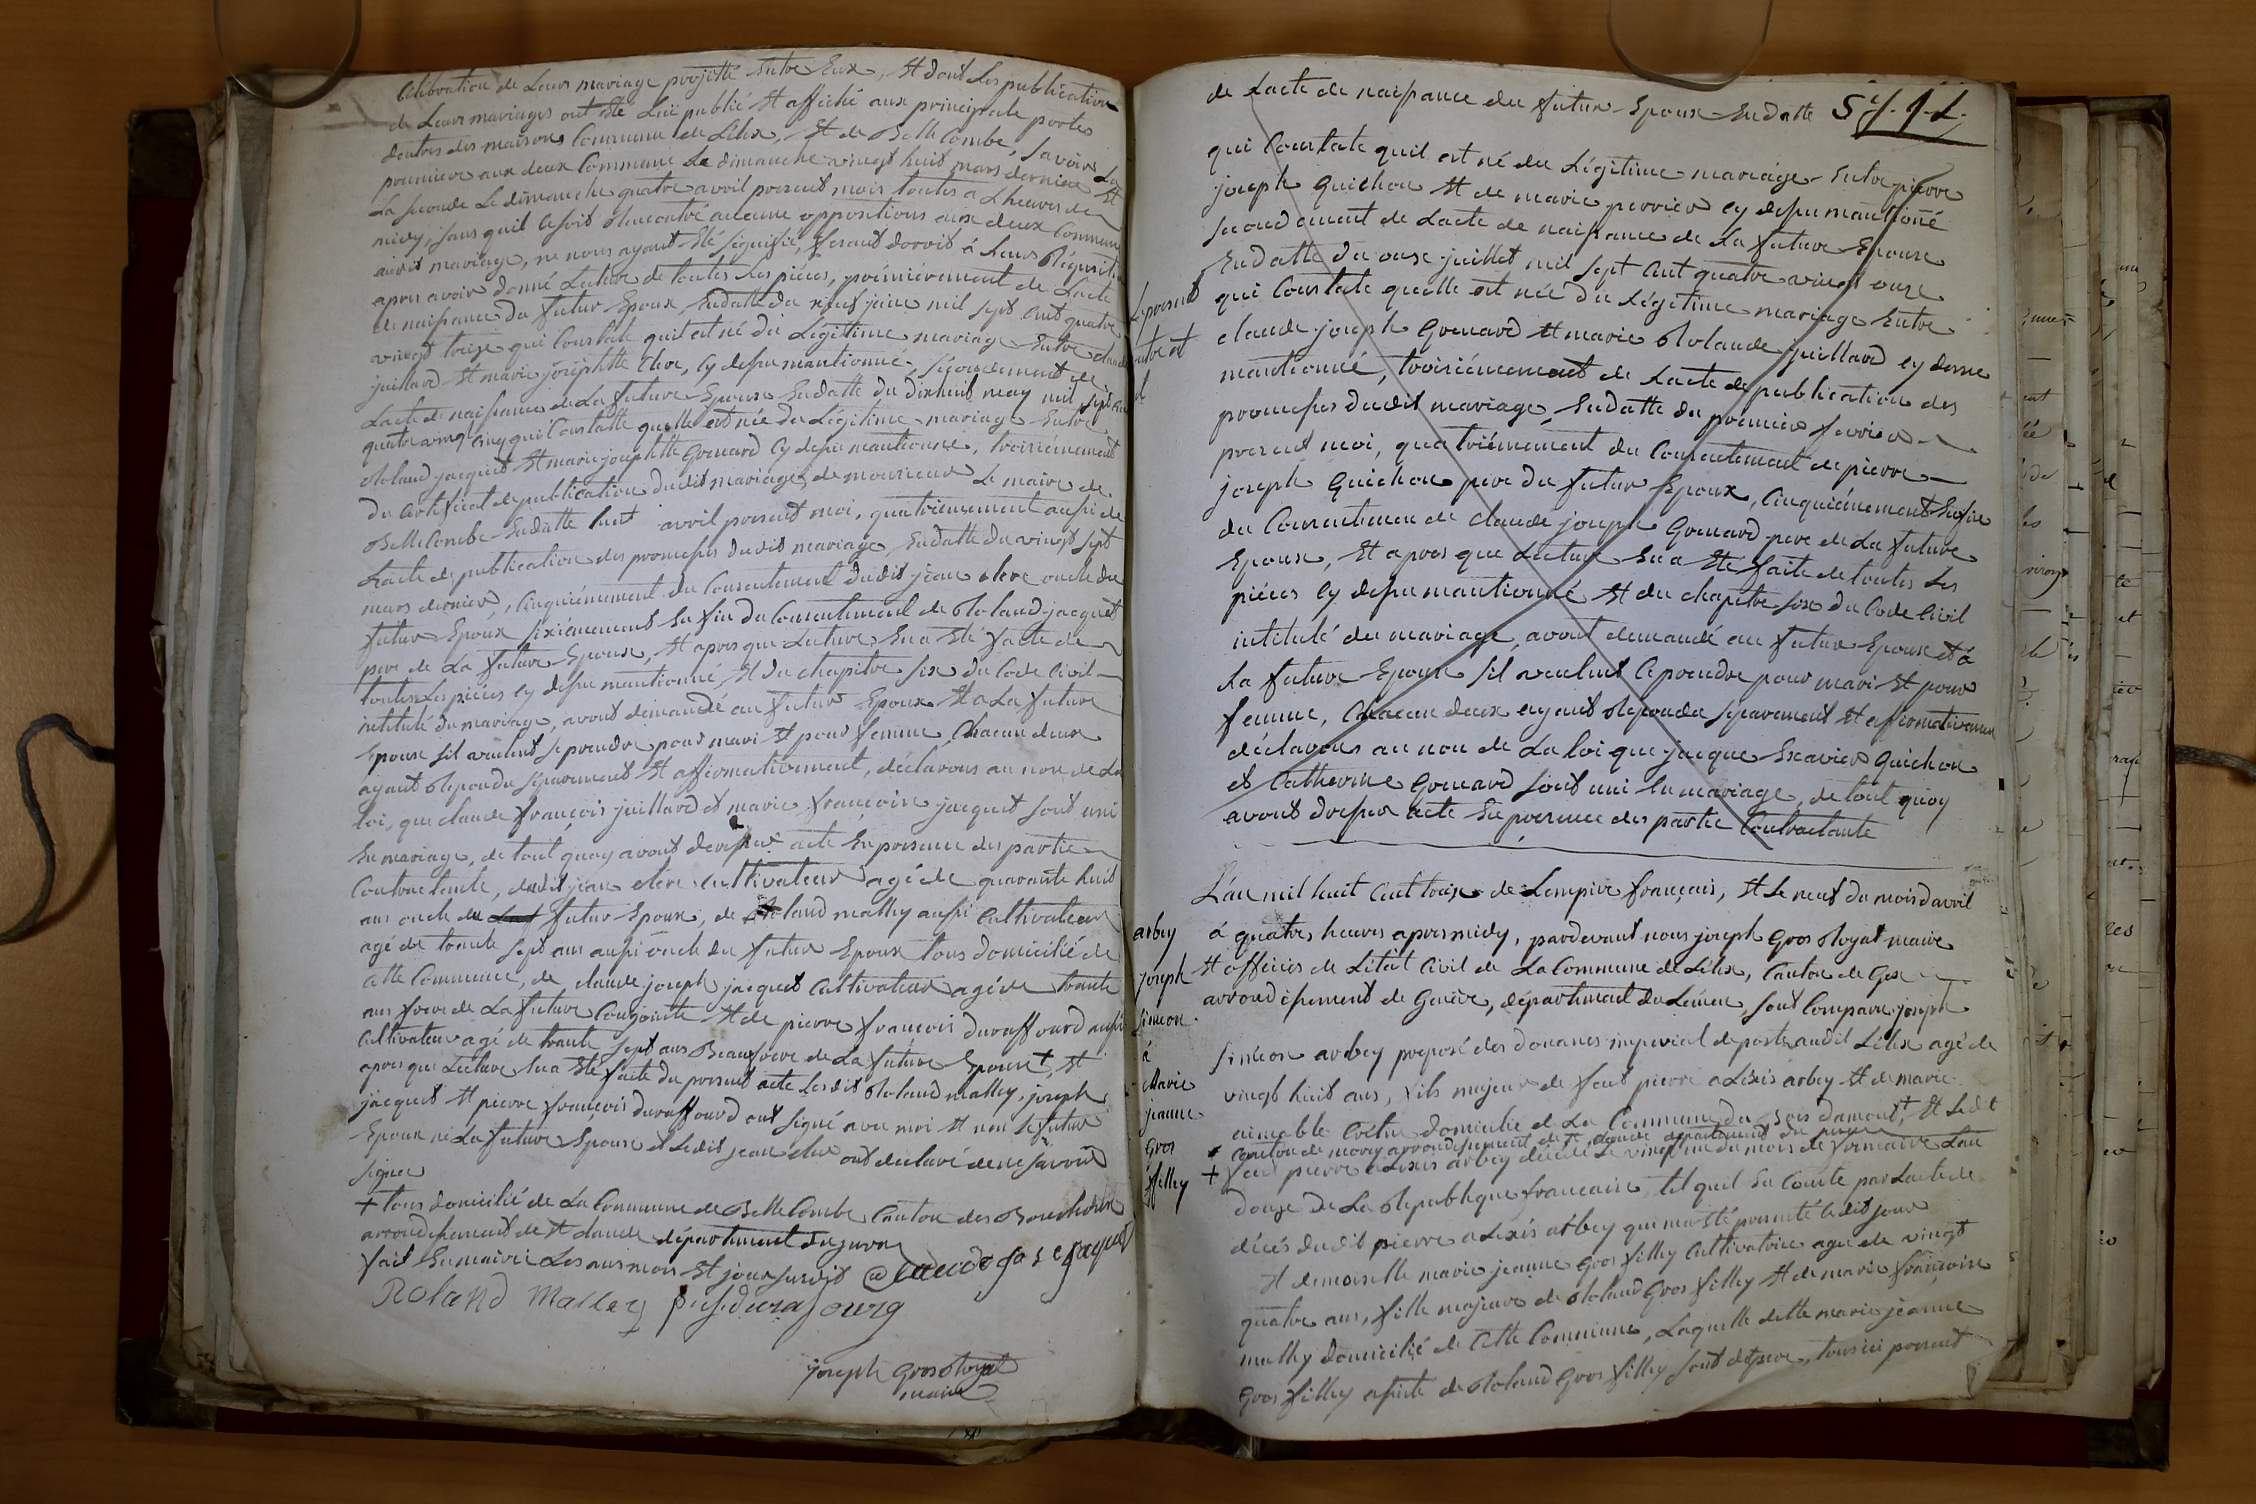 Celibration de Leurs mariage projetté Entre Eux, Et dont Les publication
de Leurs mariages ont Eté Lüe publié Et affiché aux principale portes
dentrée des maisons Commune de Lélex, Et de Belle Combe, Savoirs La
premiere aux deux Commune Le dimanche vingt huit mars dernier Et
La seconde Le dimanche quatre avril present mois toutes a L'heures de
midy, sans quil Ce soit Rencontré aucune oppositions aux deux Commune
audit mariage, ne nous ayant Eté signifié, fesant dorvit á Leurs Réquisition
apres avoir donné Lecture de toutes Les piéces, prémiérement de Lacte
de naissance du futur Epoux Endatte du neuf juin mil sept Cent quatre
vingt treize qui Constate quil est né du Légitime mariage Entre claude
juillard Et marie josephtte Clere, Cy dessu mantionné, sécondement de
Lacte de naissance de La future Epouse Endatte du dixhuit may mil sept Cent
quatre vingt Cinq qui Constatte quelle est née du Légitime mariage Entre
Roland jacquet Et marie josephtte Gonnard Cy dessu mantionne, troisiémement
du Certificat de publication dudit mariage, de monsieur Le maire de
Belle Combe Endatte huit avril present moi, quatriémement aussi de
Lacte de publication des promesses dudit mariage Endatte du vingt sept
mars dernier, Cinquiémement du Consentement dudit jean Clere oncle du
futur Epoux sixiémement Enfin du Consentement de Roland jacquet
pere de La future Epouse, Et apres que Lecture En a Eté faite de
toutes Les piéces cy dessu mantionné, Et du chapitre six du Code Civil
intitulé du mariage, avont demandé au futur Epoux Et a La future
Epouse sil veulent se prendre pour mari Et pour femme, Chacun deux
ayant Repondu séparement Et affirmativement, déclarons au nom de La
loi, que claude françois juillard et marie françoise jacquet sont uni
En mariage, de tout quoy avont dressé acte En presence des partie
Contractante, dudit jean clere Cultivateur agé de quarante huit
ans oncle du futur Epoux, de Roland mathy aussi Cultivateur
agé de trente sept ans aussi oncle du futur Epoux tous domicilié de
Cette Commune, de claude joseph jacquet Cultivateur agé de trante
ans frere de La future Conjointe Et de pierre françois duraffourd aussi
Cultivateur agé de trante sept ans Beaufrere de La future Epouse +, Et
apres que Lecture En a Eté faite du present acte Lesdit Roland mathy, joseph
jacquet Et pierre françois duraffourd ont signé avec moi Et non Le futur
Epoux ni La future Epouse et Ledit jean clere ont déclaré de ne savoir
signer
+ tous domicilié de La Commune de Belle Combe Canton des Bouchoux
arrondissement de St claude département du jura
fait En mairie Les ans mois Et jour susdit Claude jose jaquet
Roland Mathey p f duraffourg
joseph Gros Royat
maire
de Lacte de naissance du futur Epoux Endatte
qui Constate quil est né du Légitime mariage Entre pierre
joseph Guichon Et de marie perrier cy dessu mantioné
secondement de Lacte de naissance de La future Epouse
Endatte du onze juillet mil sept Cent quatre vingt onze
qui Constate quelle est née du Légitime mariage Entre
claude joseph Gonnard Et marie Rolande juillard cy dessu
mantionné, troisiémement de Lacte de publication des
promesses dudit mariage, Endatte du premier fevrier
present moi, quatriémement du Consentement de pierre
joseph Guichon pere du futur Epoux, Cinquiémement Enfin
du Consentement de claude joseph Gonnard pere de La future
Epouse, Et apres que Lecture En a Eté faite de toutes Les
piéces Cy dessu mantionné Et du chapitre six du Code Civil
intitulé du mariage, avont demandé au futur Epoux et á
La future Epouse sil veulent Ce prendre pour mari Et pour
femme, Chacun deux ayant Repondu séparement Et affirmativement
déclarons au non de La loi que jacque Exavier Guichon
et Catherine Gonnard sont uni En mariage, de tout quoy
avont dressé acte En presence des partie Contractante
arbey
joseph
simeon
á
Marie
jeanne
Gros
filley
L'an mil huit Cent treize de L'empire français, Et Le neuf du mois d'avril
á quatre heures apres midy, pardevant nous joseph Gros Royat maire
Et officier de L'état Civil de La Commune de Lélex, Canton de Gex
arrondissement de Genève, département du Léman, sont Comparu joseph
siméon arbey preposé des douanes imperial de poste audit Lélex agé de
vingt huit ans, fils majeur de feut pierre aLéxis arbey Et de marie
aimable domicilié de La Commune du Bois damont +, Et Ledit
+ Canton de morey arrondissement de St claude département du jura
feu pierre aLéxis arbey décédé Le vingt un du mois de frimaire L'an
douze de La Republique francaise tel quil En Conste par Lacte de
décés dudit pierre aLéxis arbey qui ma Eté presenté Cedit jour
Et demoiselle marie jeanne Gros filley Cultivatrice agée de vingt
quatre ans, fille majeure de Roland Gros filley Et de marie françoise
mathy domicilié de Cette Commune, Laquelle dette marie jeanne
Gros filley assisté de Roland Gros filley sont dit pere, tous ici present